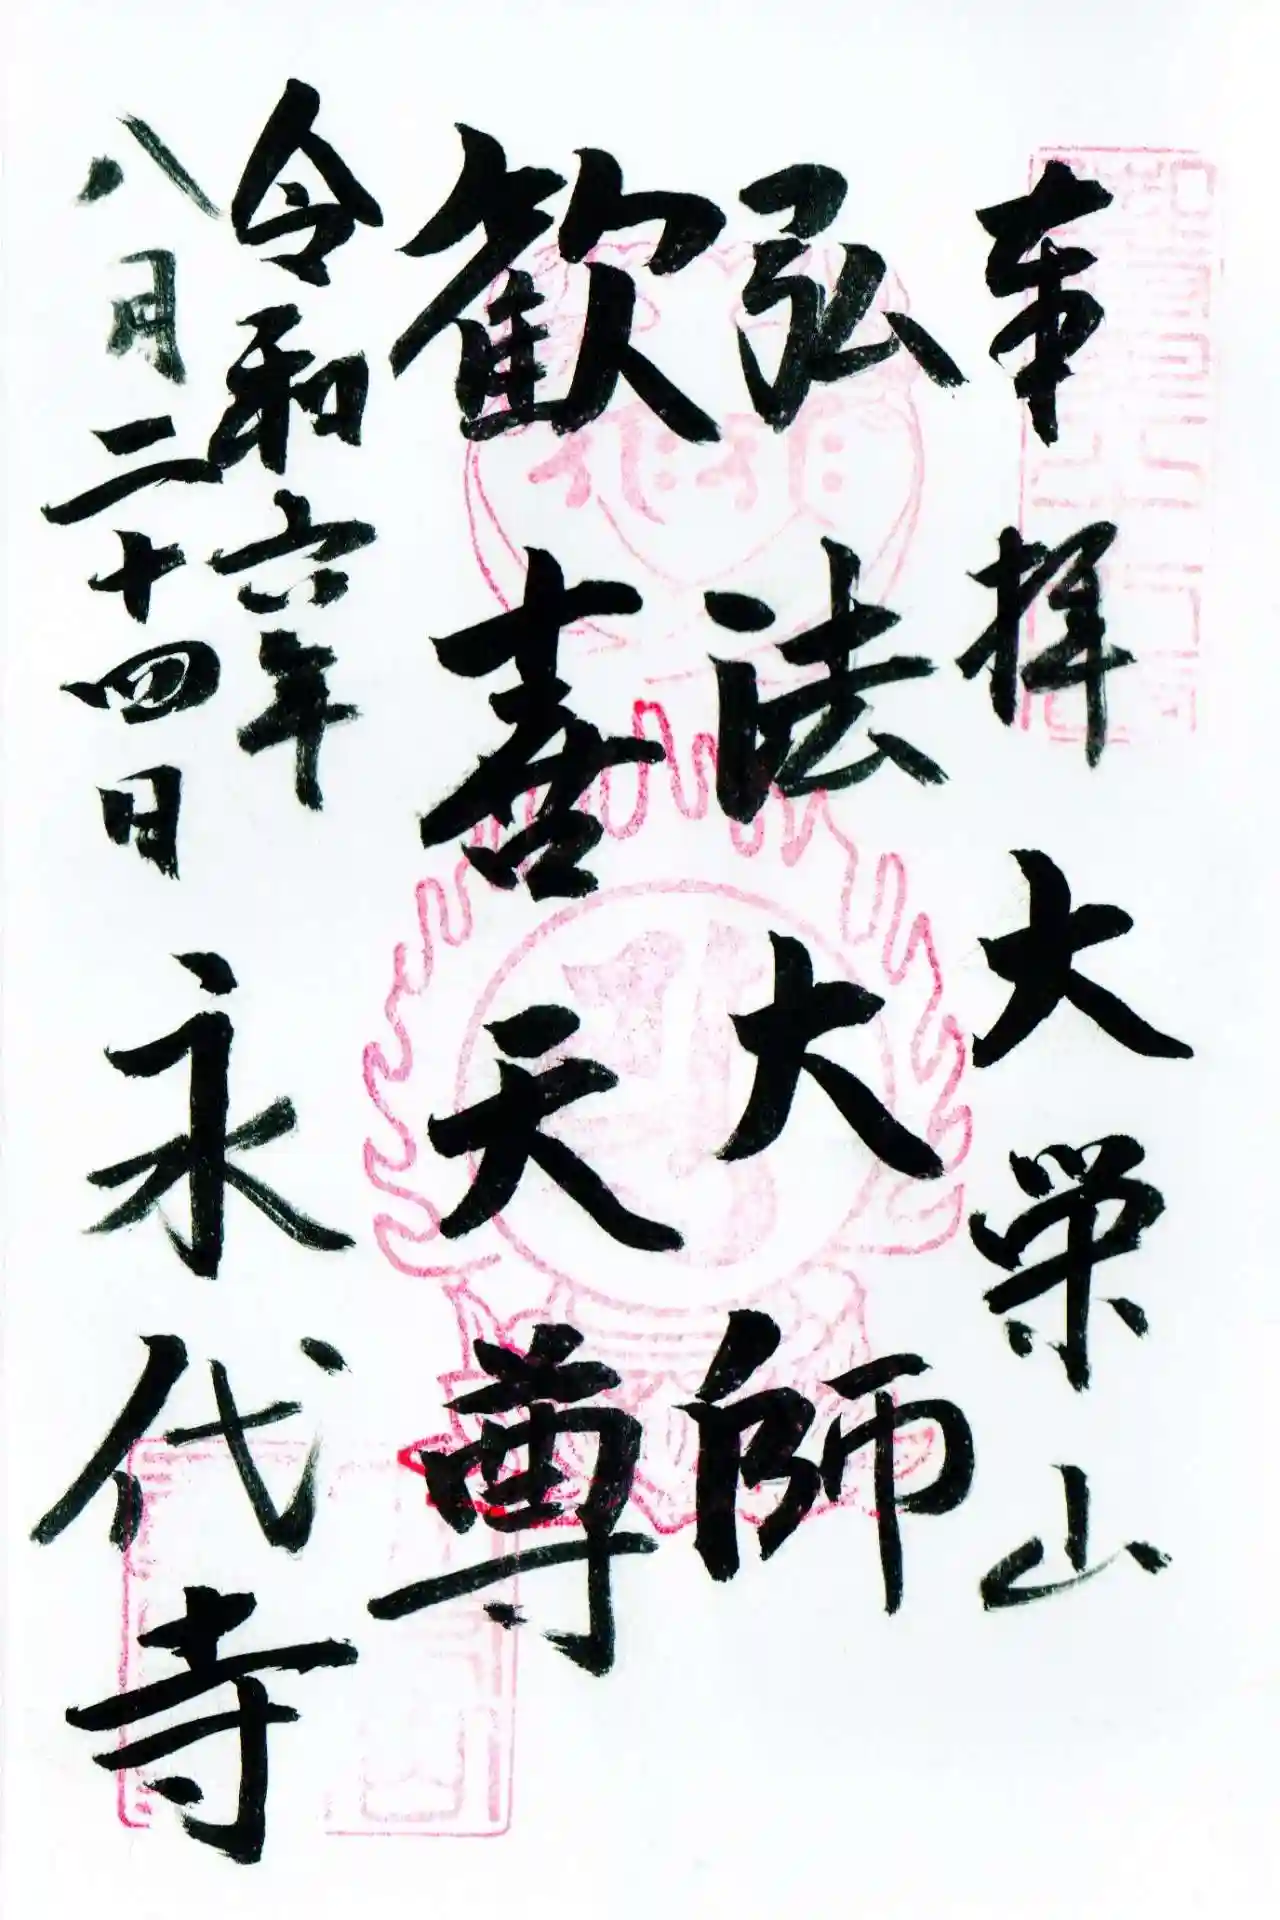 奉拝 大栄山
弘法大師
歓喜天尊
令和六年
八月二十四日
永代寺